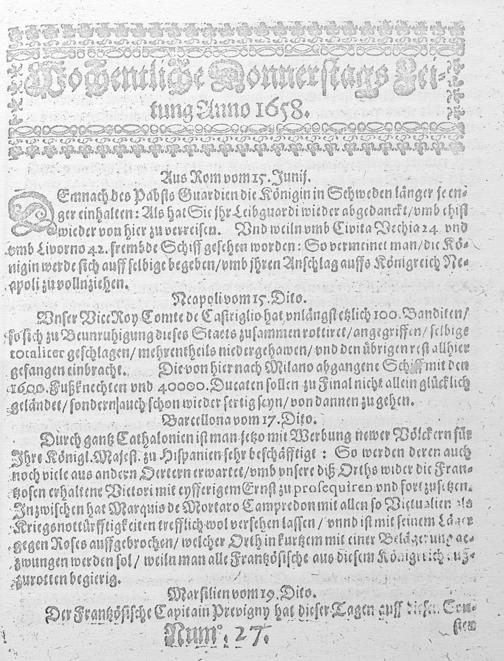 Wochentliche Donnerstags Zei-
tung Anno 1658.
Aus Rom vom 15. Junij.
DEmnach des Pabsts Guardien die Königin in Schweden länger je en-
ger einhalten: Als hat Sie jhr Leibguardi wieder abgedanckt/ vmb ehist
wieder von hier zu verreisen. Vnd weiln vmb Civita Vechia 24. vnd
vmb Livorno 42. frembde Schiff gesehen worden: So vermeinet man/ die Kö-
nigin werde sich auff selbige begeben/ vmb jhren Anschlag auffs Königreich Ne-
apoli zu vollnziehen.
Neapoli vom 15. Dito.
Vnser Vice Roy Comte de Castriglio hat vnlängst etzlich 100. Banditen/
so sich zu Beunruhigung dieses Staets zusammen rottiret/ angegriffen/ selbige
totaliter geschlagen/ mehrentheils niedergehawen/ vnd den übrigen rest allhier
gefangen einbracht. Die von hier nach Milano abgangene Schiff mit den
1600. Fußknechten vnd 40000. Ducaten sollen zu Final nicht allein glücklich
geländet/ sondern auch schon wieder fertig seyn/ von dannen zu gehen.
Barcellona vom 17. Dito.
Durch gantz Cathalonien ist man jetzo mit Werbung newer Völckern für
Jhre Königl. Majest. zu Hispanien sehr beschäfftigt: So werden deren auch
noch viele aus andern Oertern erwartet/ vmb vnsere diß Orths wider die Fran-
tzosen erhaltene Victori mit eyfferigem Ernst zu prosequiren vnd fortzusetzen.
Inzwischen hat Marquis de Mortaro Campredon mit allen so Victualien als
Kriegsnottürfftigkeiten trefflich wol versehen lassen/ vnnd ist mit seinem Läger
gegen Roses auffgebrochen/ welcher Orth in kurtzem mit einer Belägerung ge-
zwungen werden sol/ weiln man alle Frantzösische aus diesem Königreich auß-
zurotten begierig.
Marsilien vom 19. Dito.
Der Frantzösische Capitain Previgny hat dieser Tagen auff dieser Cou-
sten
Num. 27.